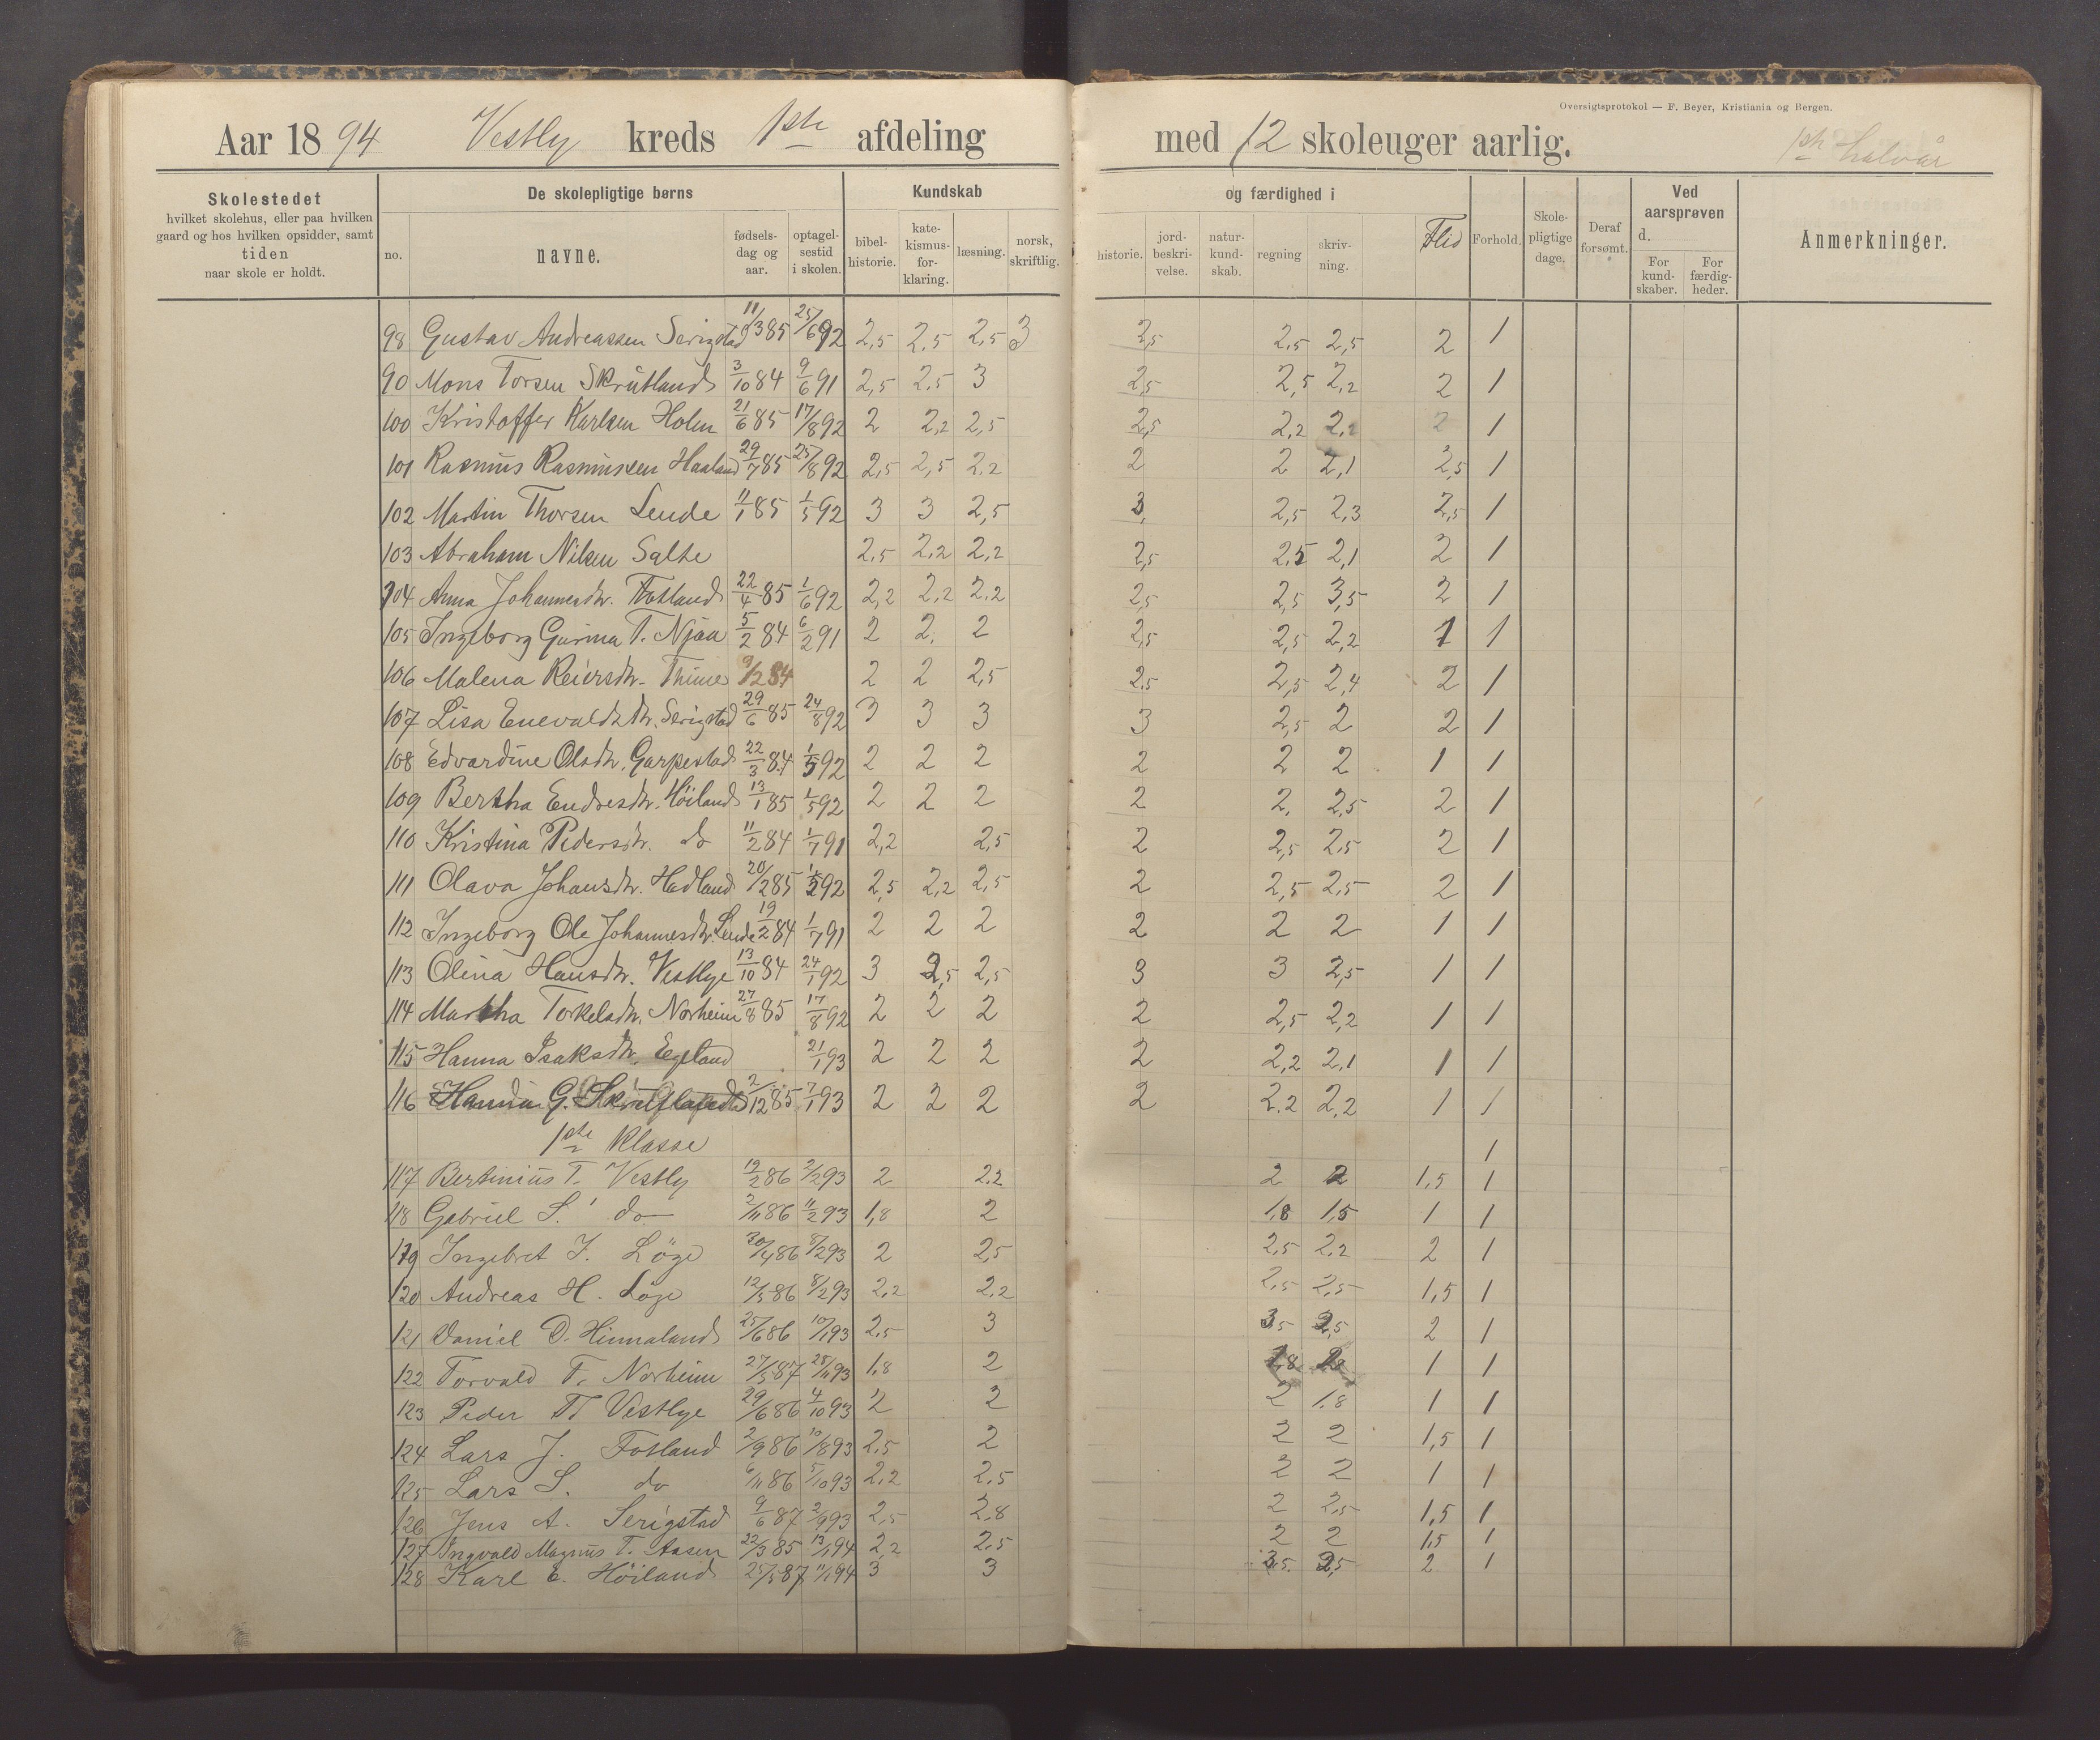 Oversigtsprotokol — F. Beyer, Kristiania og Bergen.
Aar 1894 Vestly kreds 1ste afdeling med 12 skoleuger aarlig. 1ste halvår
Skolestedet hvilket skolehus, eller paa hvilken gaard og hos hvilken opsidder, samt tiden naar skole er holdt.
De skolepligtige børns
no. navne. fødsels-dag og aar. optagel-sestid i skolen.
Kundskab og færdighed i
bibel-historie. kate-kismus-for-klaring. læsning. norsk, skriftlig. historie. jord-beskri-velse. natur-kund-skab. regning skriv-ning. Flid Forhold. Skole-pligtige dage. Deraf forsømt. Ved aarsprøven d. For kund-skaber. For færdig-heder. Anmerkninger.
98 Gustav Andreassen Serigstad 11/3 85 25/6 92 2,5 2,5 2,5 3 2,5 2,5 2,5 2 1
90 Mons Torsen Skrutland 3/10 84 9/6 91 2,5 2,5 3 2,5 2,5 2,2 2 1
100 Kristoffer Karlsen Holm 21/6 85 17/8 92 2 2,2 2,5 2,5 2,2 2,2 2 1
101 Rasmus Rasmussen Haaland 29/7 85 25/8 92 2,5 2,5 2,2 2 2 2,1 2,5 1
102 Martin Thorsen Lende 11/1 85 1/5 92 3 3 2,5 3, 2,5 2,3 2,5 1
103 Abraham Nilsen Salte 2,5 2,2 2,2 2,5 2,5 2,1 2 1
104 Anna Johannesdtr. Fotland 22/4 85 1/6 92 2,2 2,2 2,2 2,5 2,5 3,5 2 1
105 Ingeborg Gurina T. Njaa 5/2 84 6/2 91 2 2, 2 2,5 2,5 2,2 1 1
106 Malena Reiersdtr. Thime 9/2 84 2 2 2,5 2,5 2,5 2,4 2 1
107 Lisa Enevaldsdtr. Serigstad 29/6 85 24/8 92 3 3 3 3 2,5 2 2 1
108 Edvardine Olsdtr. Garpestad 22/3 84 1/5 92 2 2 2 2 2 2 1 1
109 Bertha Endresdtr. Höiland 13/1 85 1/5 92 2 2 2 2 2, 2,5 2 1
110 Kristina Pedersdtr. do 11/2 84 1/7 91 2,2 2,5 2 2,5 2,5 2 1
111 Olava Johansdtr. Hadland 20/2 85 92 2,5 2,2 2,5 2 2,5 2,5 2 1
112 Ingeborg Ole Johannesdtr. Lende 19/2 84 1/7 91 2 2 2 2 2 2 1 1
113 Olina Hansdtr. Vestlye 13/10 84 24/1 92 3 2,5 2,5 3 3 2,5 1 1
114 Martha Torkelsdtr. Norheim 27/8 85 17/8 92 2 2 2 2 2,5 2,2 1 1
115 Hanna Isaksdtr. Egeland 21/1 93 2 2 2 2 2,2 2,1 1 1
116 Hanna G. 2/12 85 7/1 93 2 2 2 2 2,2 2,2 1 1
1ste klasse 1
117 Bertinius T. Vestly 19/2 86 2/2 93 2 2,2 2 2 1,5 1
118 Gabriel S. do 2/11 86 11/2 93 1,8 2 1,8 1,5 1 1
119 Ingebret J. Löge 30/4 86 8/2 93 2 2,5 2,5 2,2 2 1
120 Andreas H. Löge 12/5 86 8/2 93 2,2 2,2 2,5 2,5 1,5 1
121 Daniel D. Hinnaland 25/6 86 10/1 93 2,5 3 3,5 2,5 2 1
122 Torvald T. Norheim 27/5 87 28/11 93 1,8 2 1,8 1 1
123 Peder T. Vestlye 29/6 86 4/10 93 2 2 2 1,8 1 1
124 Lars J. Fotland 2/9 86 10/8 93 2,5 2 2 2 1,5 1
125 Lars S. do 6/11 86 5/10 93 2,2 2,5 2 2 1 1
126 Jens A. Serigstad 9/6 87 2/9 93 2,5 2,8 2 2,5 1,5 1
127 Ingvald Magnus T. Aasen 22/3 85 13/1 94 2,2 2,5 2 2 1,5 1
128 Karl E. Höiland 25/5 87 11/1 94 3 3 3,5 2,5 2 1